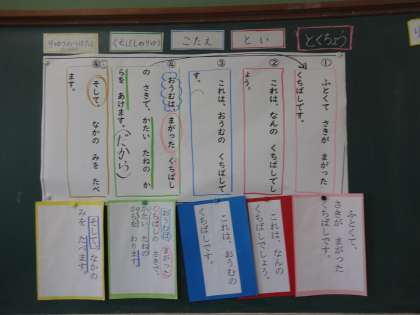 とくちょう
とい
こたえ
くちばしのりゆう
①
ふとくて さきが まがった
くちばしです。
②
これは、なんの くちばしでし
ょう。
③
これは、おうむの くちばしで
す。
④
おうむは、まがった くちばし
の さきで、かたい たねの か
らを あけます。
(だから)
そして、なかの みを たべ
ます。
ふとくて、
さきが まがった
くちばしです。
これは、なんの
くちばしでしょう。
これは、おうむの
くちばしです。
おうむは、まがった
くちばしの さきで、
かたい たねの
からを わります。
そして、なかの
みを たべます。